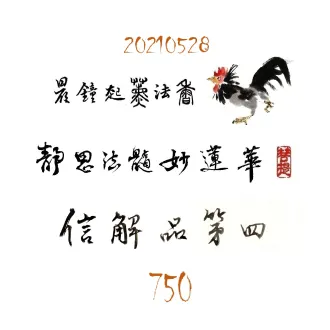 20210528
晨鐘起薰法香
靜思法髓妙蓮華
信解品第四
750